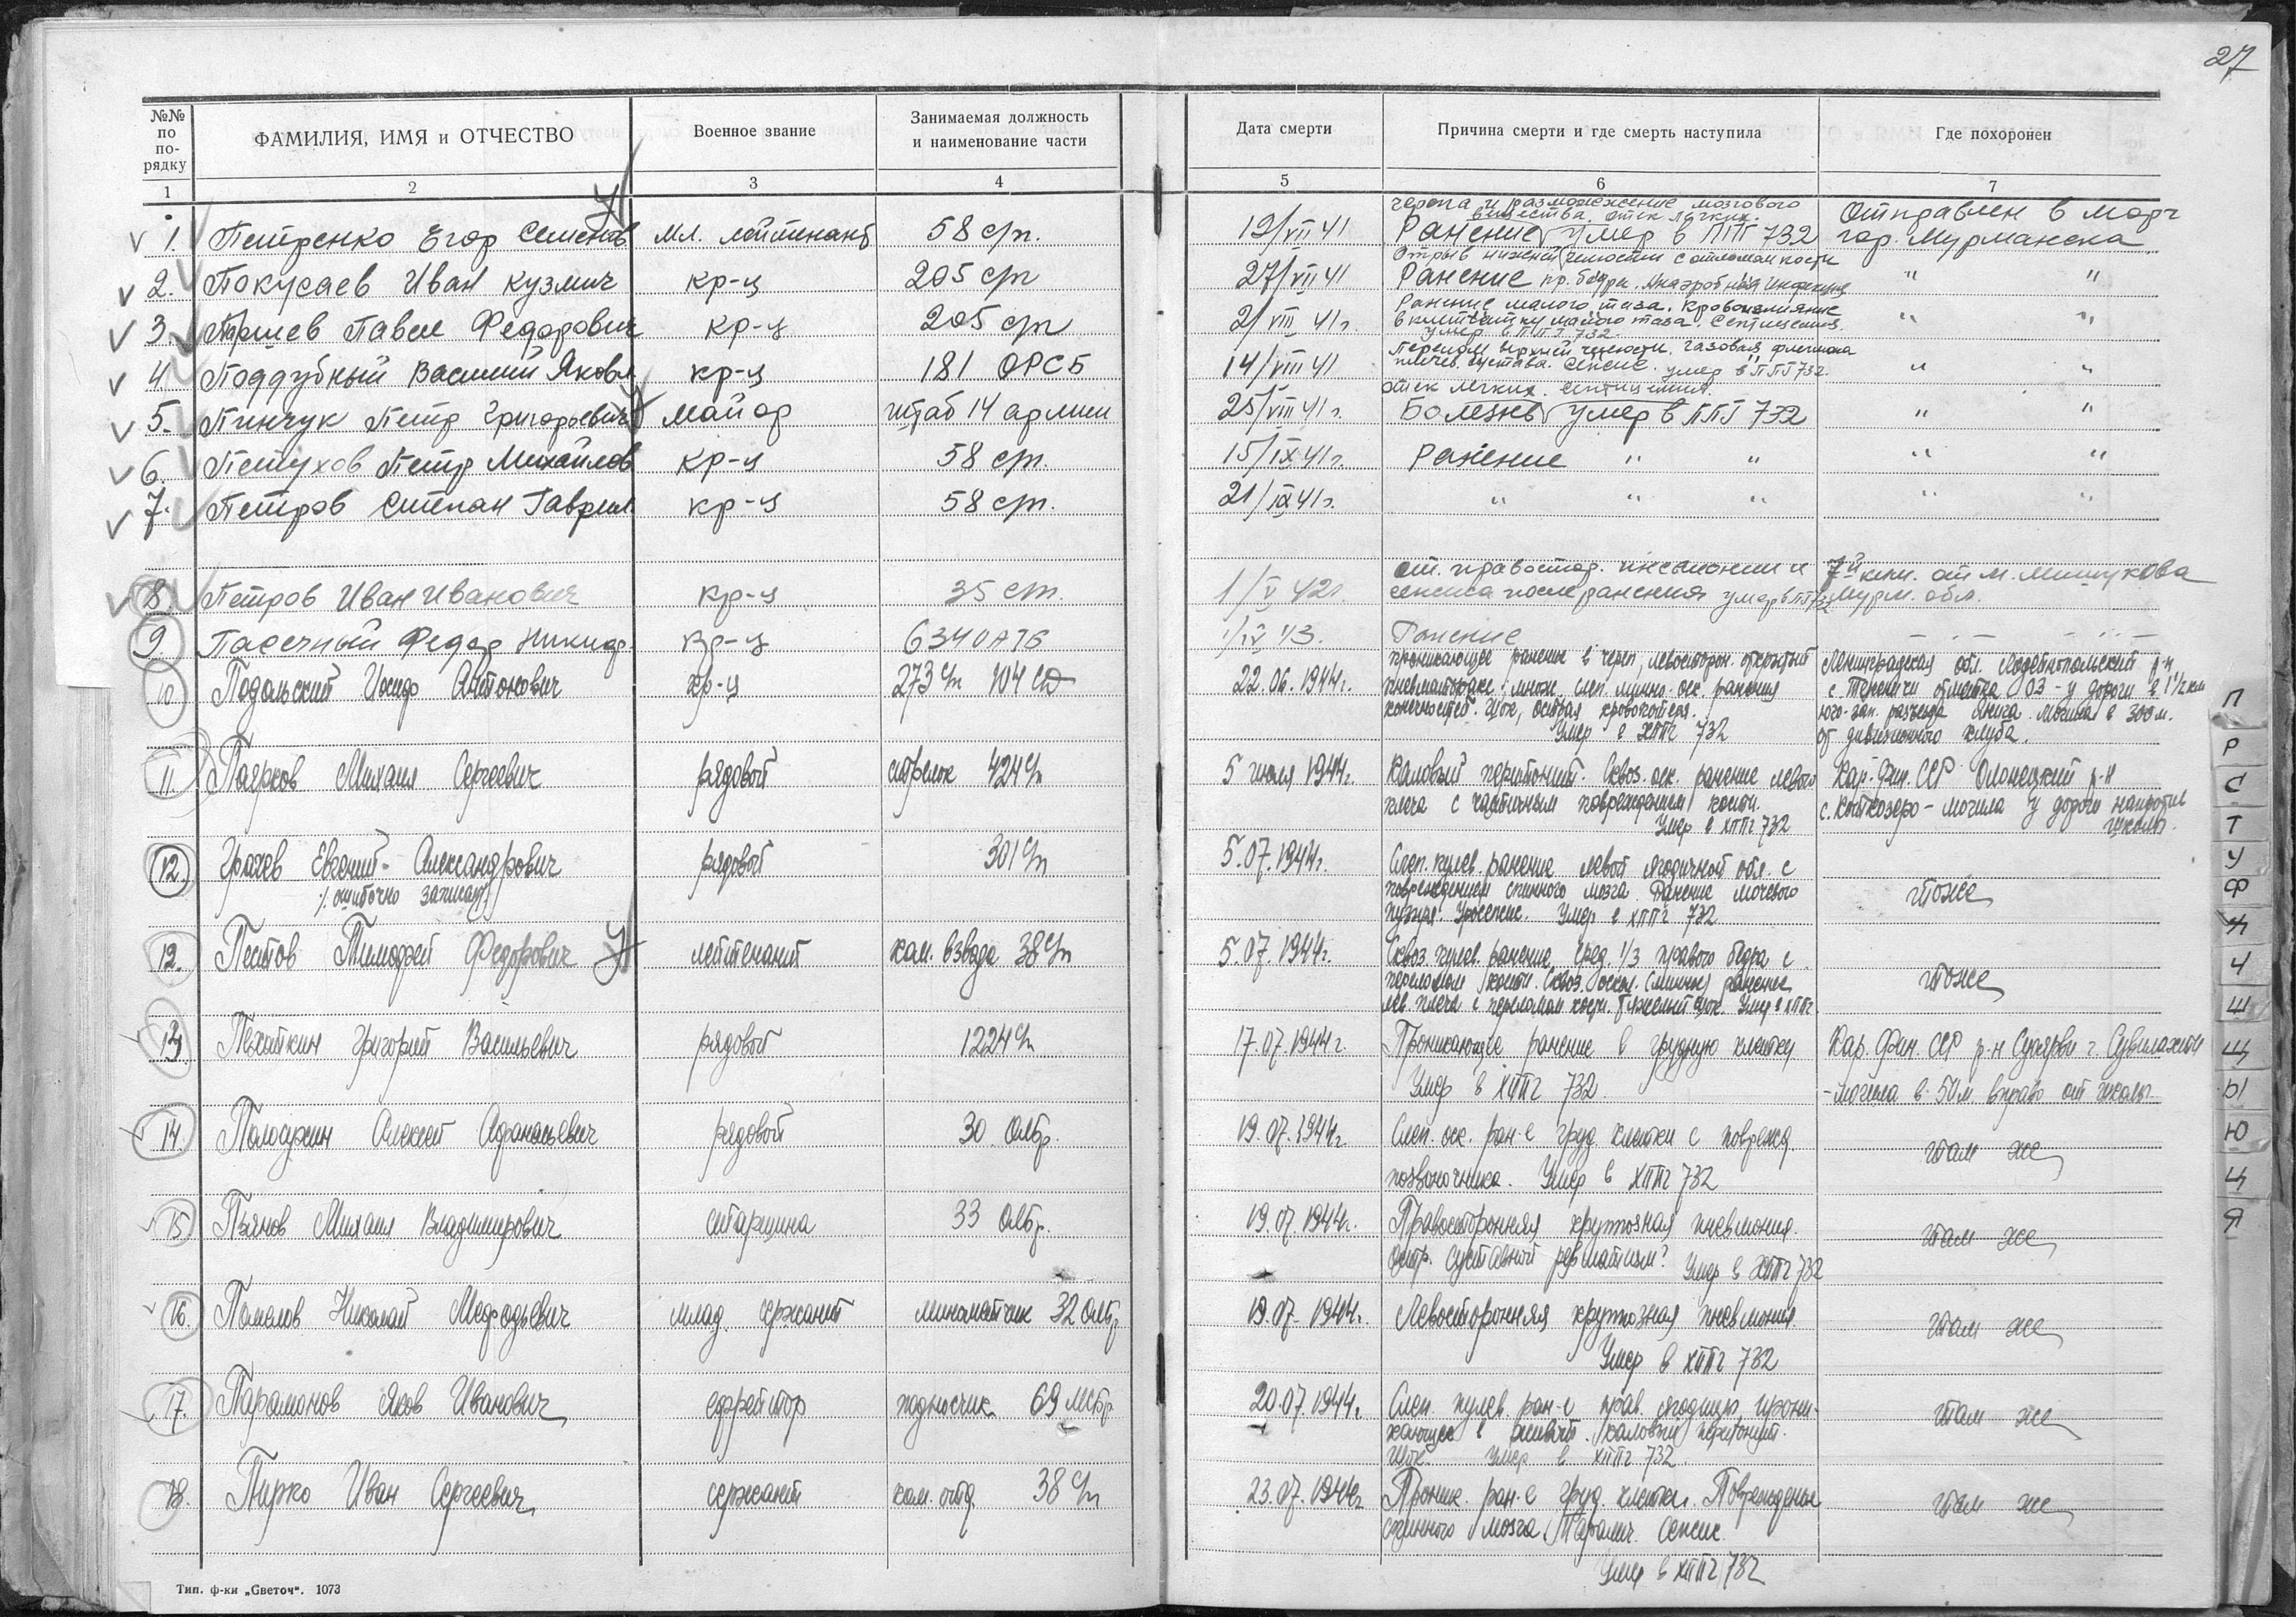 27
№№ по по- рядку
ФАМИЛИЯ, ИМЯ и ОТЧЕСТВО
Военное звание
Занимаемая должность и наименование части
Дата смерти
Причина смерти и где смерть наступила
Где похоронен
1 2 3 4 5 6 7
черепа и размозжение мозгового
вещества. отек легких.
1. Петренко Егор Семенов мл. лейтенант 58 сп. 19/VII 41 Ранение умер в ППГ 732 Отправлен в морг
гор. Мурманска
Отрыв нижней челюсти с отломом кости
2. Покусаев Иван Кузмич кр-ц 205 сп 27/VII 41 Ранение пр. бедра. Анаэробная инфекция " "
Ранение малого таза. Кровоизлияние
3. Павел Федорович кр-ц 205 сп 2/VIII 41г. в клетчатку малого таза. Септицемия. " "
умер в ППГ 732
Перелом верхней челюсти. газовая флегмона
4. Поддубный Василий Яковл кр-ц 181 ОРСБ 14/VIII 41 плечев. сустава. Сепсис. умер в ППГ 732 " "
отек легких. септицемия.
5. Пинчук Петр Григорьевич майор штаб 14 армии 25/VIII 41г. Болезнь умер в ППГ 732 " "
6. Петухов Петр Михайлов кр-ц 58 сп. 15/IX 41г. Ранение " " " "
7. Петров Степан Гаврил. кр-ц 58 сп. 21/IX 41г. " " " " "
от правостор. пневмонии и 7й клм. от м. Мишукова
8. Петров Иван Иванович кр-ц 35 сп. 1/V 42г. сепсиса после ранения умер в ППГ 732 Мурм. обл.
9. Пасечный Федор Никиф. кр-ц 634 ОАТБ 1/IV 43. Ранение
проникающее ранение в череп, левосторон. открытый Ленинградская обл. Лодейнопольский р-н
10 Подольский Иосиф Антонович кр-ц 273 сп 104 СД 22.06.1944г. пневматоракс. множ. слеп. минно-оск. ранения с. Тененичи отметка 03 - у дороги в 1½ км
конечностей. Шок, острая кровопотеря. юго-зап. разъезда Янига. Могила в 300 м.
Умер в ХППГ 732 от дивизионного клуба.
11. Паярков Михаил Сергеевич рядовой стрелок 424 сп 5 июля 1944г. Каловый перитонит. Сквоз. оск. ранение левого Кар.-Фин. ССР Олонецкий р-н
плеча с частичным повреждением кости. с. Коткозеро - могила у дороги напротив
Умер в ХППГ 732 школы.
12. Грачев Евгений Александрович рядовой 301 сп 5.07.1944г. Слеп. пулев. ранение левой ягодичной обл. с
/ошибочно записан/ повреждением спинного мозга. Ранение мочевого тоже
пузыря. Уросепсис. Умер в ХППГ 732
12. Пестов Тимофей Федорович лейтенант ком. взвода 38 сп 5.07.1944г. Сквоз. пулев. ранение сред. 1/3 правого бедра с
переломом кости. Сквоз. оскол. (минное) ранение тоже
лев. плеча с переломом кости. Тяжелый шок. Умер в ХППГ
13. Пехаткин Григорий Васильевич рядовой 1224 сп 17.07.1944г. Проникающее ранение в грудную клетку Кар. Фин. ССР р-н Суоярви г. Сувилахти
Умер в ХППГ 732 - могила в 50 м. вправо от школы
14. Полосухин Алексей Афанасьевич рядовой 30 ОЛБр. 19.07.1944г. Слеп. оск. ран-е груд. клетки с поврежд. там же
позвоночника. Умер в ХППГ 732
15 Пьянов Михаил Владимирович старшина 33 ОЛБр. 19.07.1944г. Правосторонняя крупозная пневмония. там же
Остр. суставной ревматизм? Умер в ХППГ 732
16. Помелов Николай Мефодьевич млад. сержант минометчик 32 ОЛБр 19.07.1944г. Левосторонняя крупозная пневмония. там же
Умер в ХППГ 732
17. Парамонов Яков Иванович ефрейтор подносчик 69 МСБр 20.07.1944г. Слеп. пулев. ран-е прав. ягодицы прони- там же
кающее в живот. Каловый перитонит.
Шок. Умер в ХППГ 732
18. Пирко Иван Сергеевич сержант ком. отд. 38 сп 23.07.1944г Проник. ран-е груд. клетки. Повреждение там же
спинного мозга. Паралич. Сепсис.
Умер в ХППГ 732
Тип. ф-ки „Светоч“. 1073
П
Р
С
Т
У
Ф
Х
Ч
Ш
Щ
Ы
Ю
Ц
Я